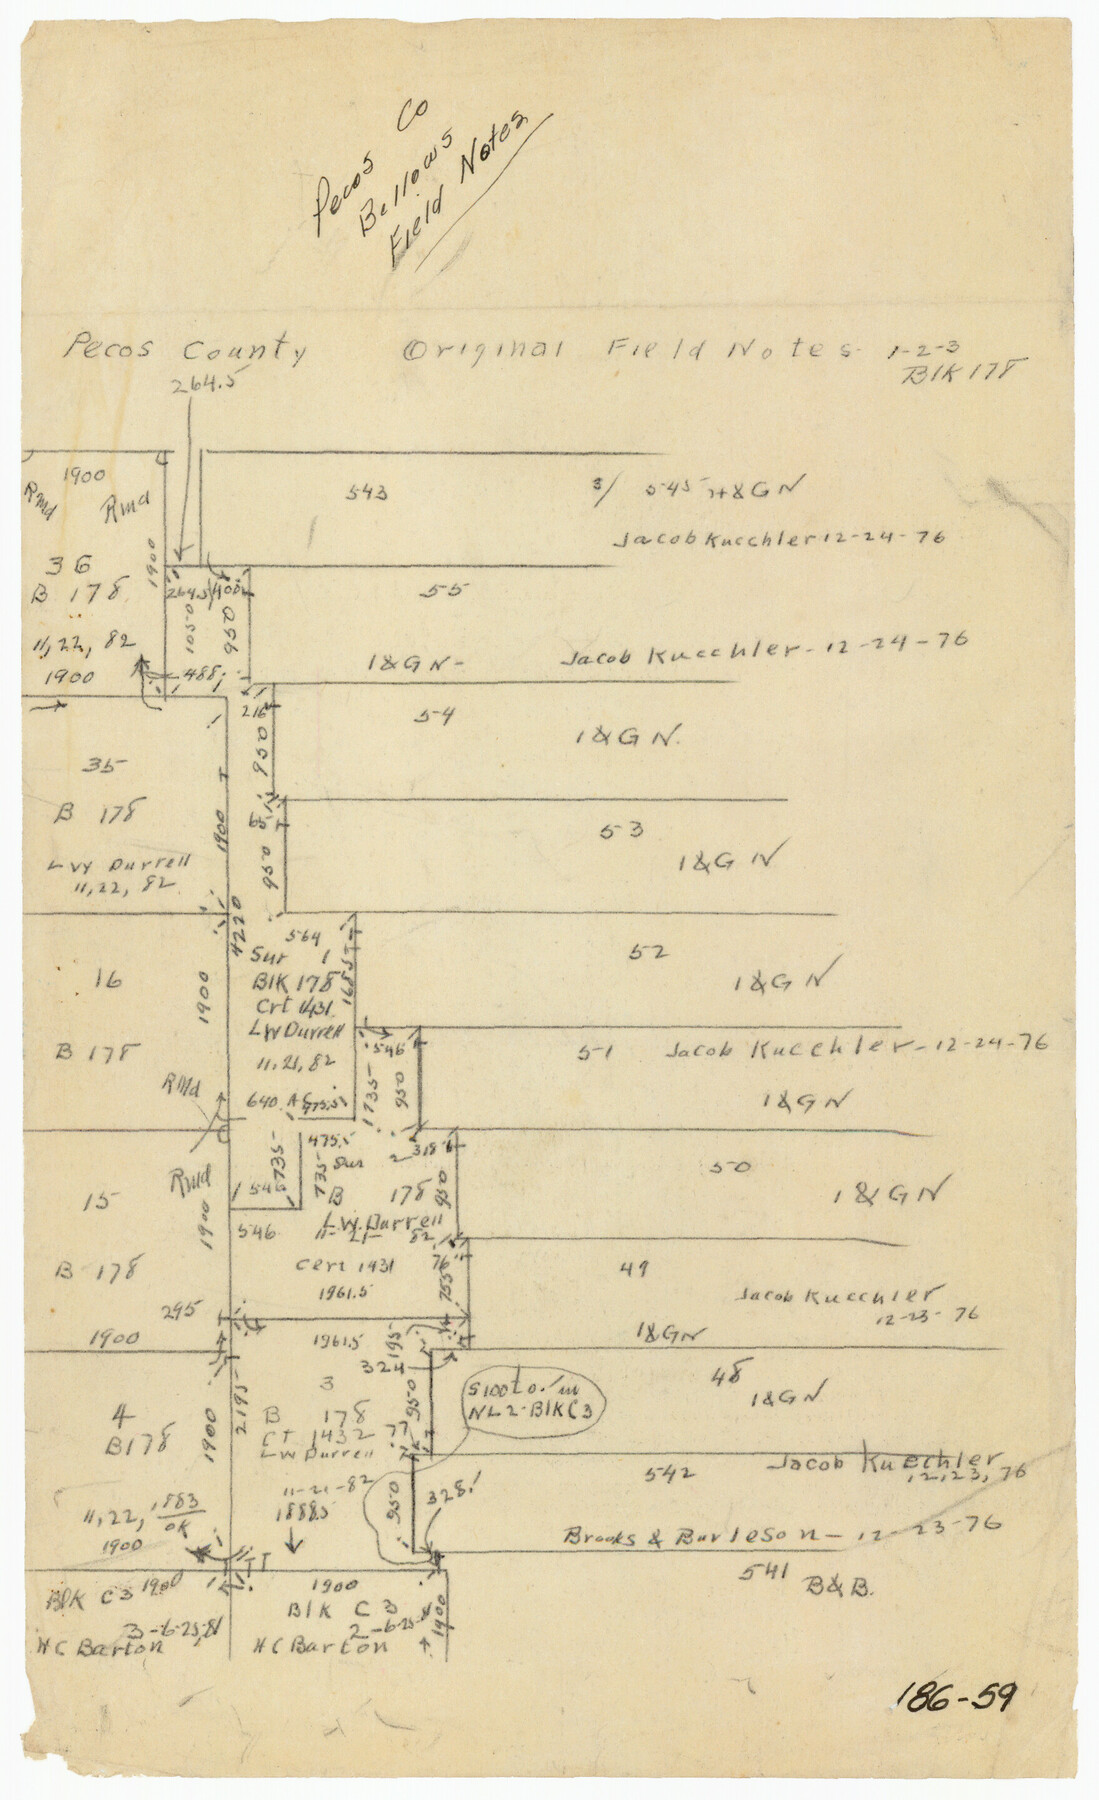 Pecos Co
Bellows
Field Notes
Pecos County Original Field Notes 1-2-3
Blk 178
264.5
1900
Rmd
Rmd
1900
36
B 178
11,22, 82
1900
543
3/ 545 I&GN
Jacob Kuechler 12-24-76
264.5
400
1050
950
488
55
I&GN-
Jacob Kuechler-12-24-76
216
950
54
I&GN.
35
B 178
LW Durrell
11,22, 82
1900
950
53
I&GN
4220
564
Sur 1
Blk 178
Crt 1431
LW Durrell
11.21,82
640 Ac
475.5
1685
52
I&GN
16
1900
B 178
Rmd
546
1735-
950
51 Jacob Kuechler-12-24-76
I&GN
Rmd
15
1900
B 178
295
1900
735-
546
546
475.5
735-
Sur 2
318
B 178
L.W. Durrell
11- 21- 82
Cert 1431
1961.5
950
50
I&GN
76
755
49
Jacob Kuechler
12-23-76
I&GN
1961.5
195-
324
3
B 178
Ct 1432
LW Durrell
11-21-82
1888.5
2195-
77
950
48
I&GN
S100 to in
NL2-BlkC3
4
B178
1900
11,22, 1883
OK
1900
950
328
542
Jacob Kuechler
12,23, 76
Brooks & Burleson-12-23-76
541
B&B.
Blk C3 1900
3-6-25,81
HC Barton
1900
Blk C3
2-6-25-81
HC Barton
1900
186-59